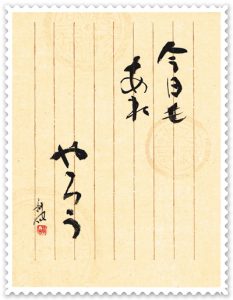 今日も
あれ
やろう